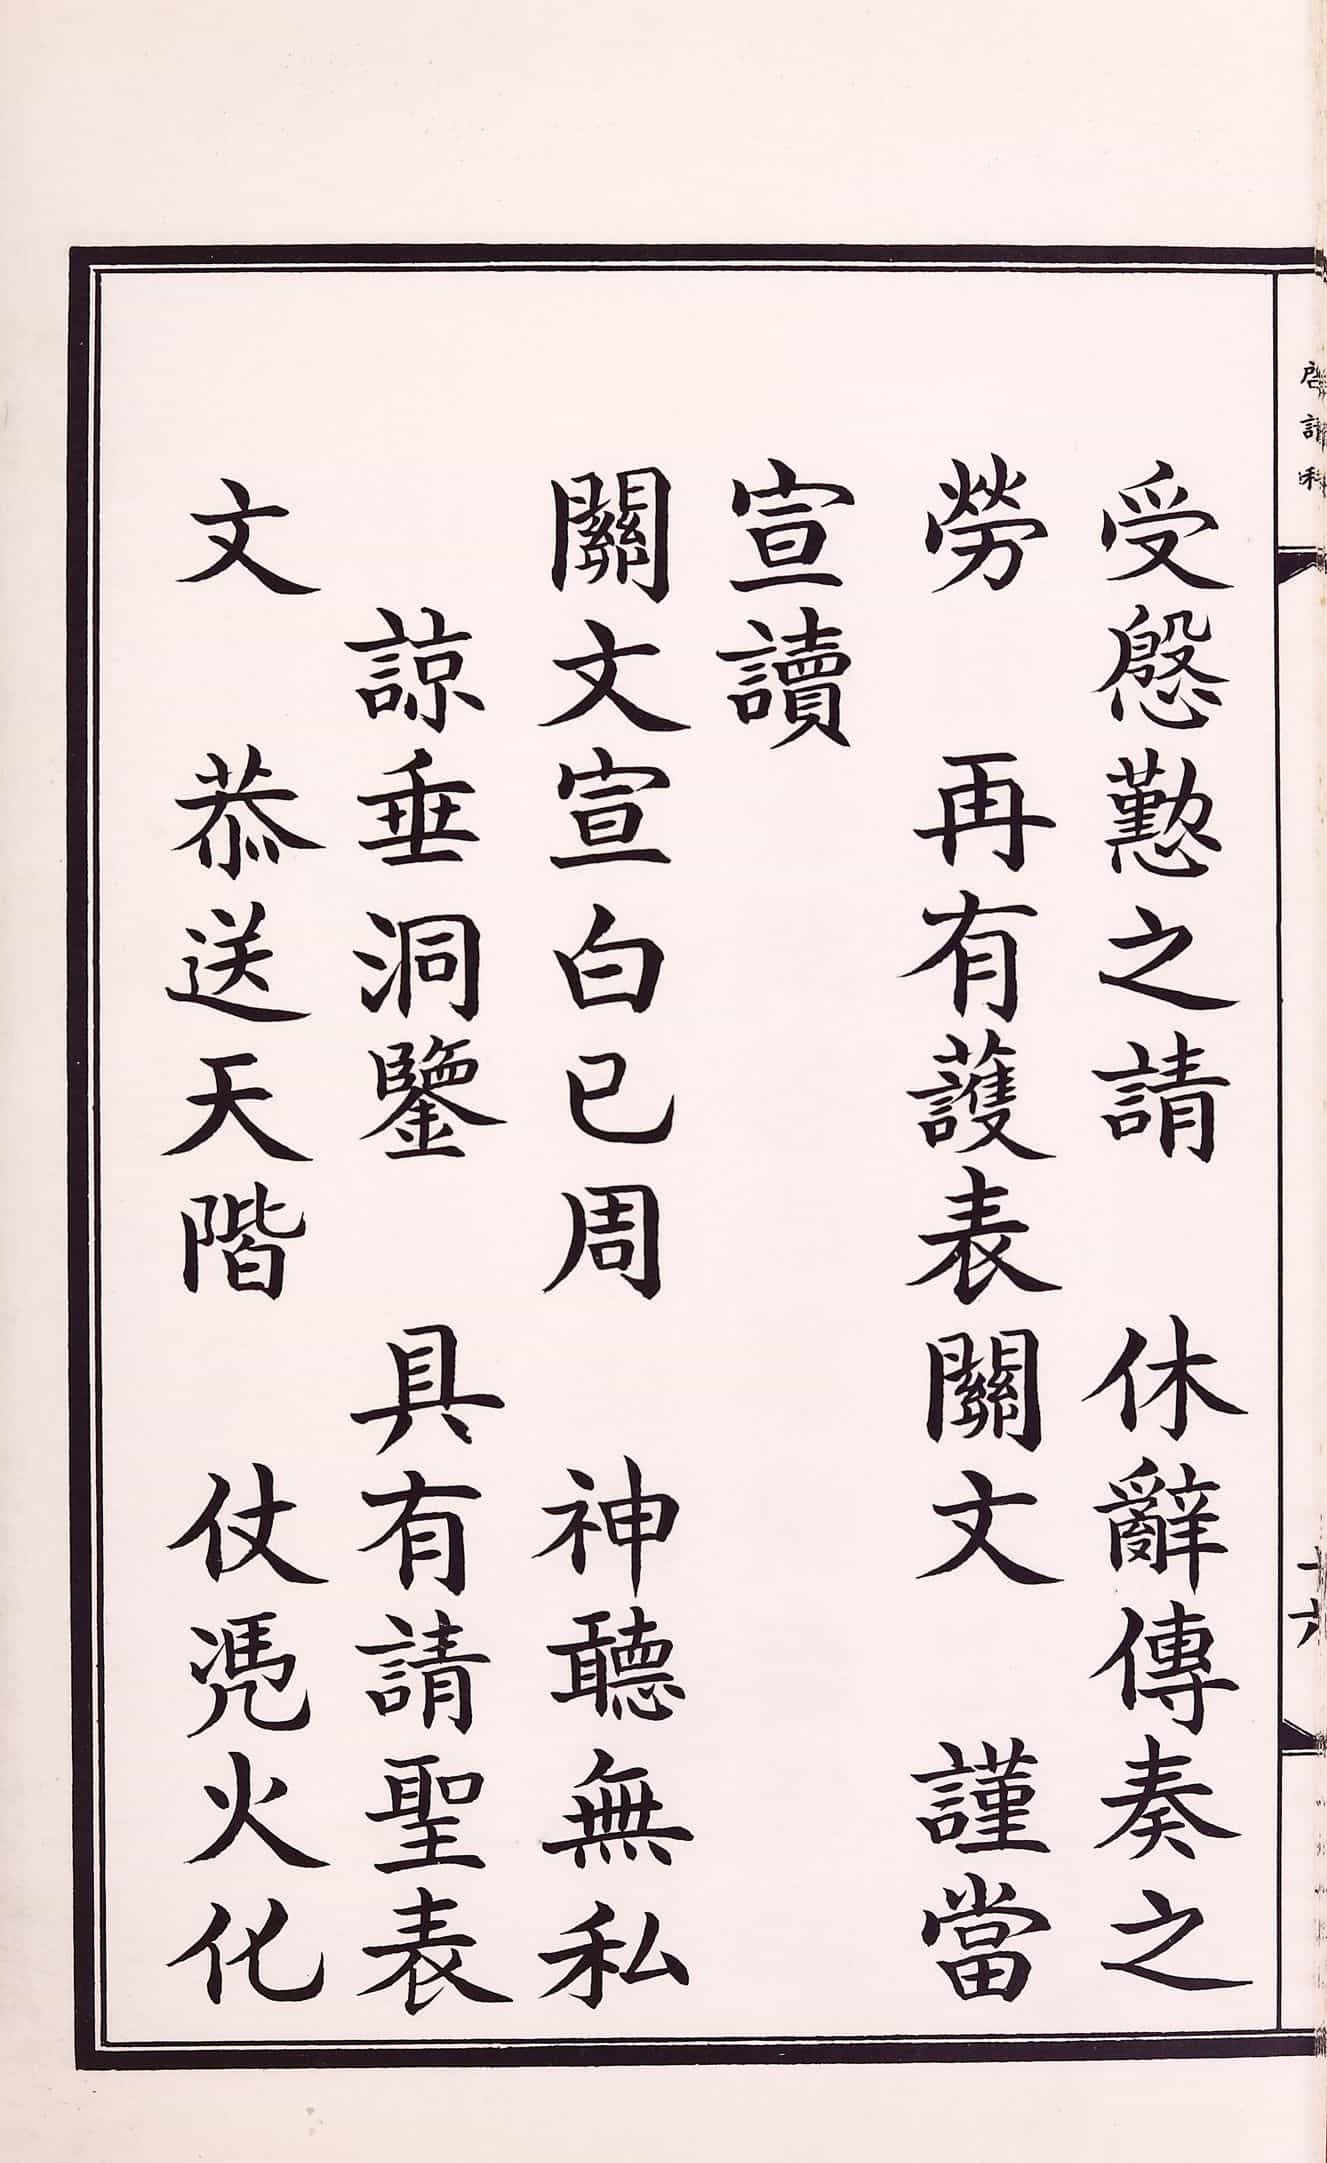 受慇懃之請　休辭傳奏之
勞　再有護表關文　謹當
宣讀
關文宣白已周　神聽無私
諒垂洞鑒　具有請聖表
文　恭送天階　仗凭火化
啓請科
十六